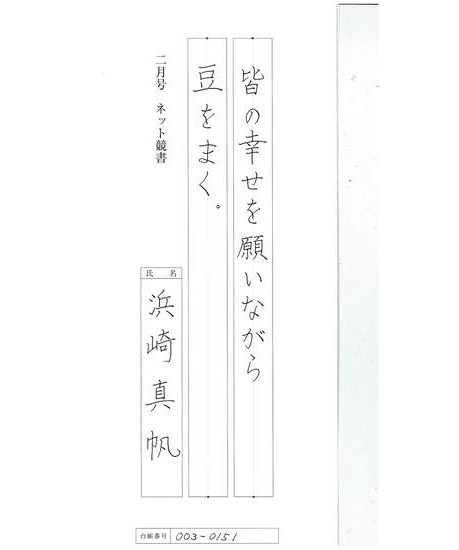 皆の幸せを願いながら
豆をまく。
二月号 ネット競書
氏名
浜崎真帆
台帳番号 003-0151